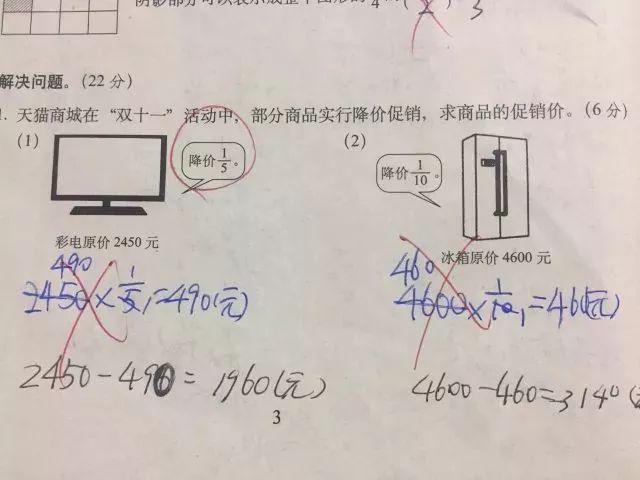 阴影部分可以表示成整个图形的 4 (2) 3
解决问题。(22分)
1. 天猫商城在“双十一”活动中，部分商品实行降价促销，求商品的促销价。(6分)
(1) (2)
降价1/5。 降价1/10。
彩电原价2450元 冰箱原价4600元
490 460
2450×1/5=490(元) 4600×1/10=460(元)
2450-490=1960(元) 4600-460=3140(
3